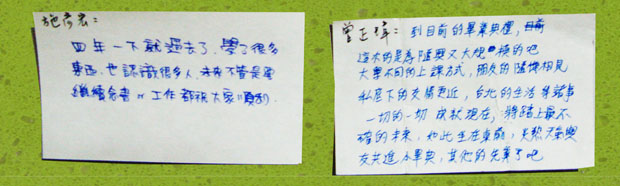 施彥宏:
四年一下就過去了,學了很多
東西,也認識很多人,未來不管是要
繼續念書 or 工作都祝大家順利.
曾正瑋: 到目前的畢業典禮,
這次的是為隆興又大規模的吧
大學不同的上課方式,朋友的隨慷相見
私底下的交情更近,台北的生活 等瑣事
一切的一切 成就現在,將踏上最不
確的未來,
友共進 畢典,其他的先算了吧